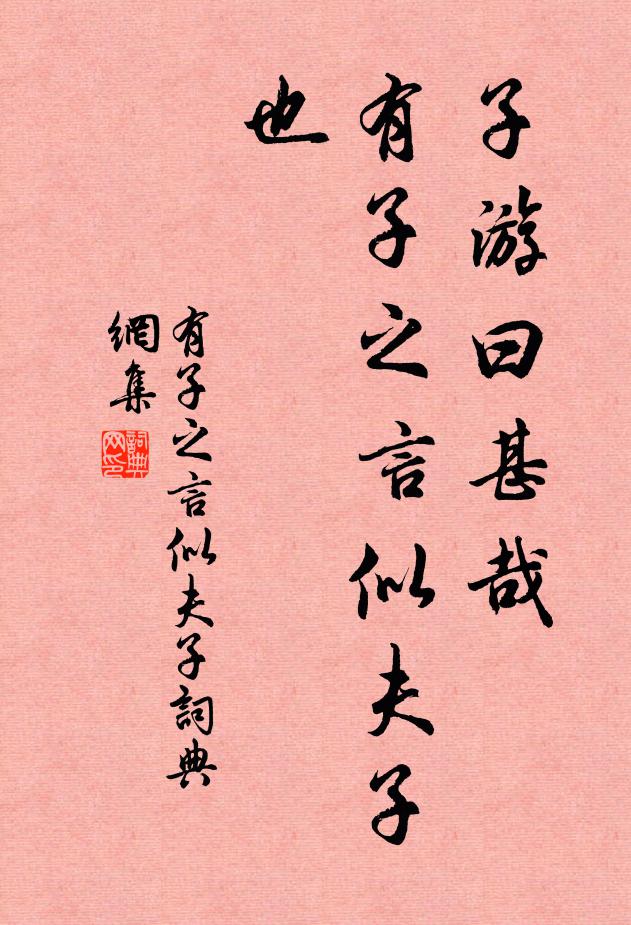 子游曰甚哉
有子之言似夫子
也
有子之言似夫子詞典
網集
詞典
网印